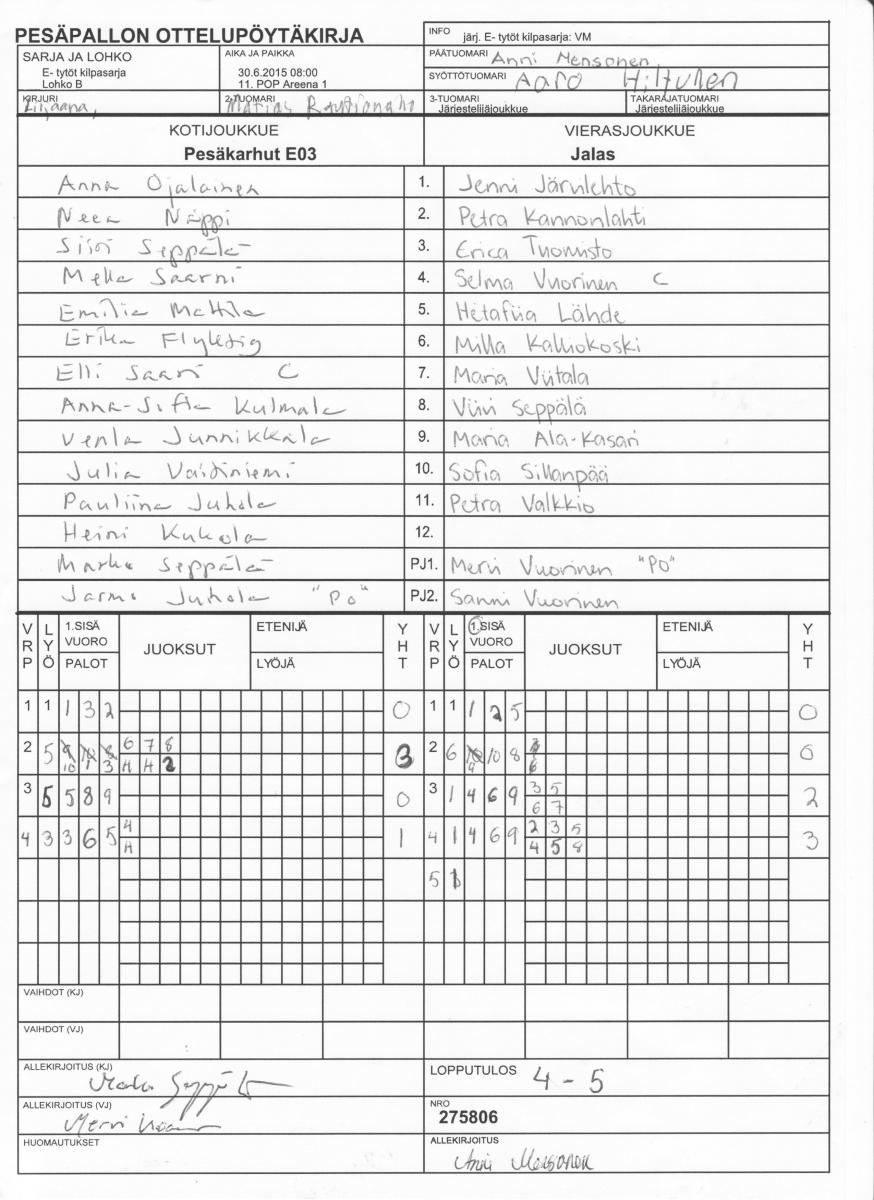 PESÄPALLON OTTELUPÖYTÄKIRJA
INFO järj. E- tytöt kilpasarja: VM
SARJA JA LOHKO
E- tytöt kilpasarja
Lohko B
AIKA JA PAIKKA
30.6.2015 08:00
11. POP Areena 1
PÄÄTUOMARI Anni Mensonen
SYÖTTÖTUOMARI Aaro Hiltunen
KIRJURI
2-TUOMARI Matias
3-TUOMARI
Järjestelijäjoukkue
TAKARAJATUOMARI
Järjestelijäjoukkue
KOTIJOUKKUE
Pesäkarhut E03
VIERASJOUKKUE
Jalas
Anna Ojalainen 1. Jenni Järvilehto
Neea Näppi 2. Petra Kannonlahti
Siiri Seppälä 3. Erica Tuomisto
Mella Saarni 4. Selma Vuorinen C
Emilia Mattila 5. Hetafiia Lähde
Erika Flyktig 6. Milla Kalliokoski
Elli Saari C 7. Maria Viitala
Anna-Sofia Kulmala 8. Viivi Seppälä
Venla Junnikkala 9. Maria Ala-Kasari
Julia Vaitiniemi 10. Sofia Sillanpää
Pauliina Juhola 11. Petra Valkkio
Heini Kukola 12.
Marko Seppälä PJ1. Mervi Vuorinen "PO"
Jarmo Juhola "PO" PJ2. Sanni Vuorinen
VRP LYÖ 1.SISÄ VUORO PALOT JUOKSUT ETENIJÄ LYÖJÄ YHT VRP LYÖ 1.SISÄ VUORO PALOT JUOKSUT ETENIJÄ LYÖJÄ YHT
1 1 1 3 2 0 1 1 1 2 5 0
6 7 8
2 5 10 1 3 H H 2 3 2 6 9 10 8 0
3 5 5 8 9 0 3 1 4 6 9 3 5 2
6 7
4 3 3 6 5 4 1 4 1 4 6 9 2 3 5 3
H 4 5 8
5 1
VAIHDOT (KJ)
VAIHDOT (VJ)
ALLEKIRJOITUS (KJ)
LOPPUTULOS 4 - 5
ALLEKIRJOITUS (VJ) Mervi
NRO
275806
HUOMAUTUKSET
ALLEKIRJOITUS Anni Mensonen